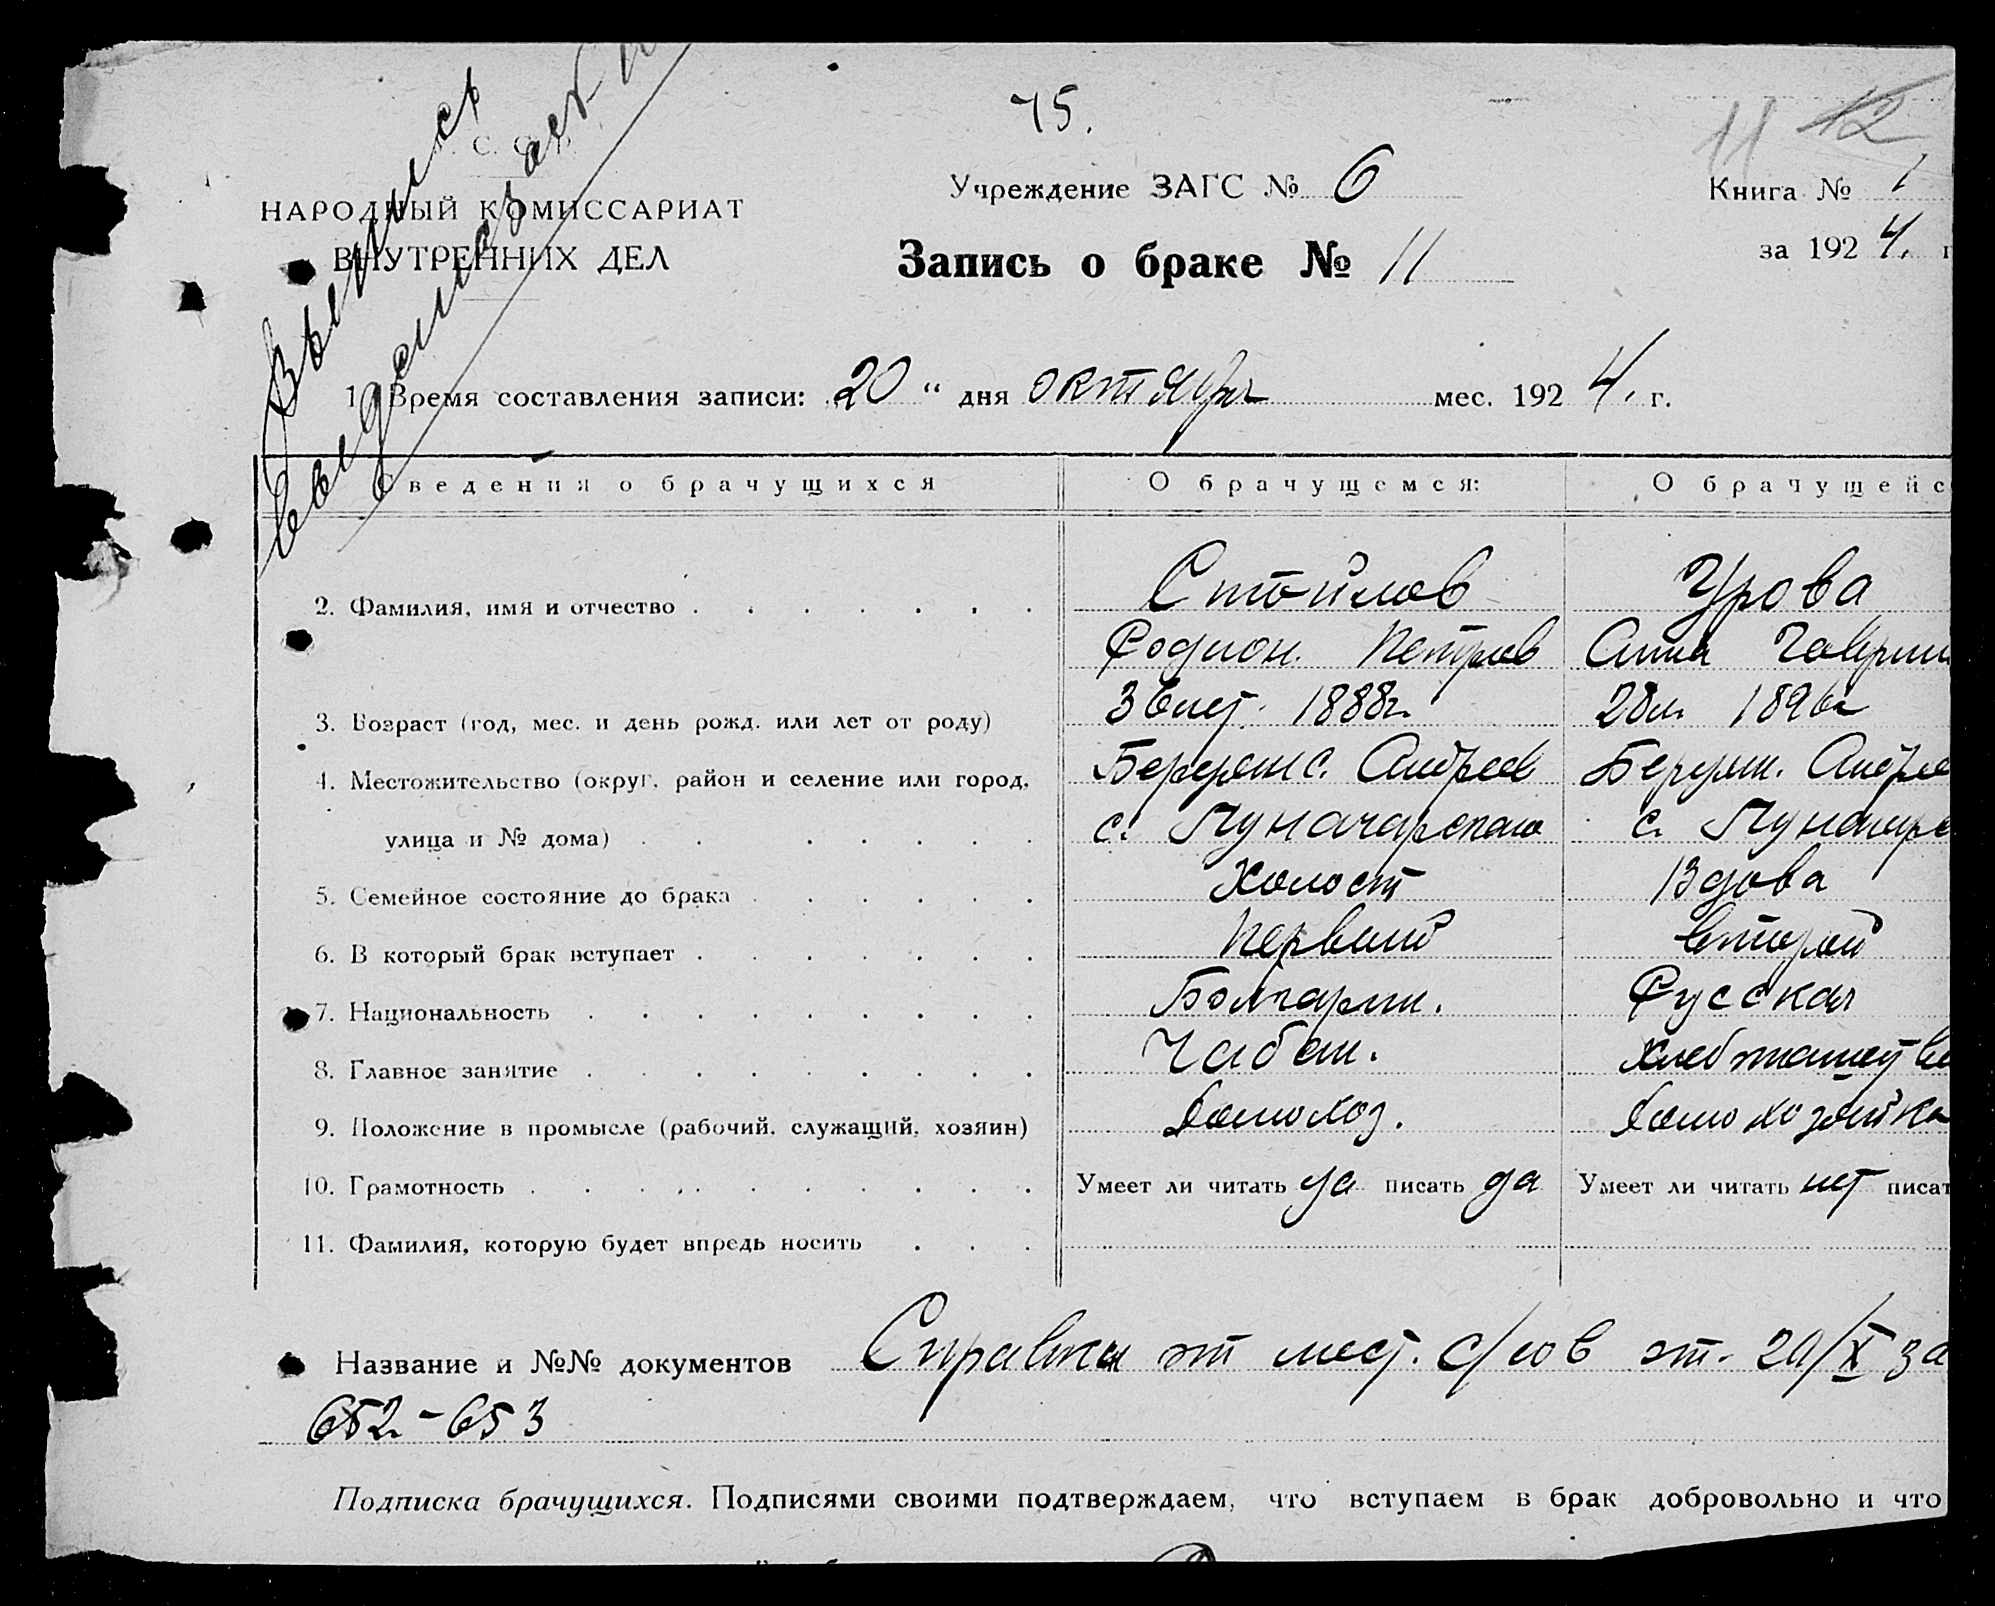 75.
11 12
Выпись
выдана
С. С.
НАРОДНЫЙ КОМИССАРИАТ
ВНУТРЕННИХ ДЕЛ
Учреждение ЗАГС № 6
Книга № 1
Запись о браке № 11
за 1924. г
1. Время составления записи: 20 " дня октября мес. 1924. г.
Сведения о брачущихся О брачущемся: О брачущейс
2. Фамилия, имя и отчество Стоилов Урова
Родион. Петров Анна Гаврил
3. Возраст (год, мес. и день рожд. или лет от роду) 36 лет. 1888г. 28л. 1896г
4. Местожительство (округ, район и селение или город, Бердянс. Андреев Бердян. Андрее
улица и № дома) с. Луначарского с. Луначарс
5. Семейное состояние до брака Холост Вдова
6. В который брак вступает Первый второй
7. Национальность Болгарин. Русская
8. Главное занятие Чабан. хлебопашество
9. Положение в промысле (рабочий, служащий, хозяин) домохоз. домохозяйка
10. Грамотность Умеет ли читать да писать да Умеет ли читать нет писат
11. Фамилия, которую будет впредь носить
Название и №№ документов Справки от мест. с/сов от. 20/X за
652-653
Подписка брачущихся. Подписями своими подтверждаем, что вступаем в брак добровольно и что